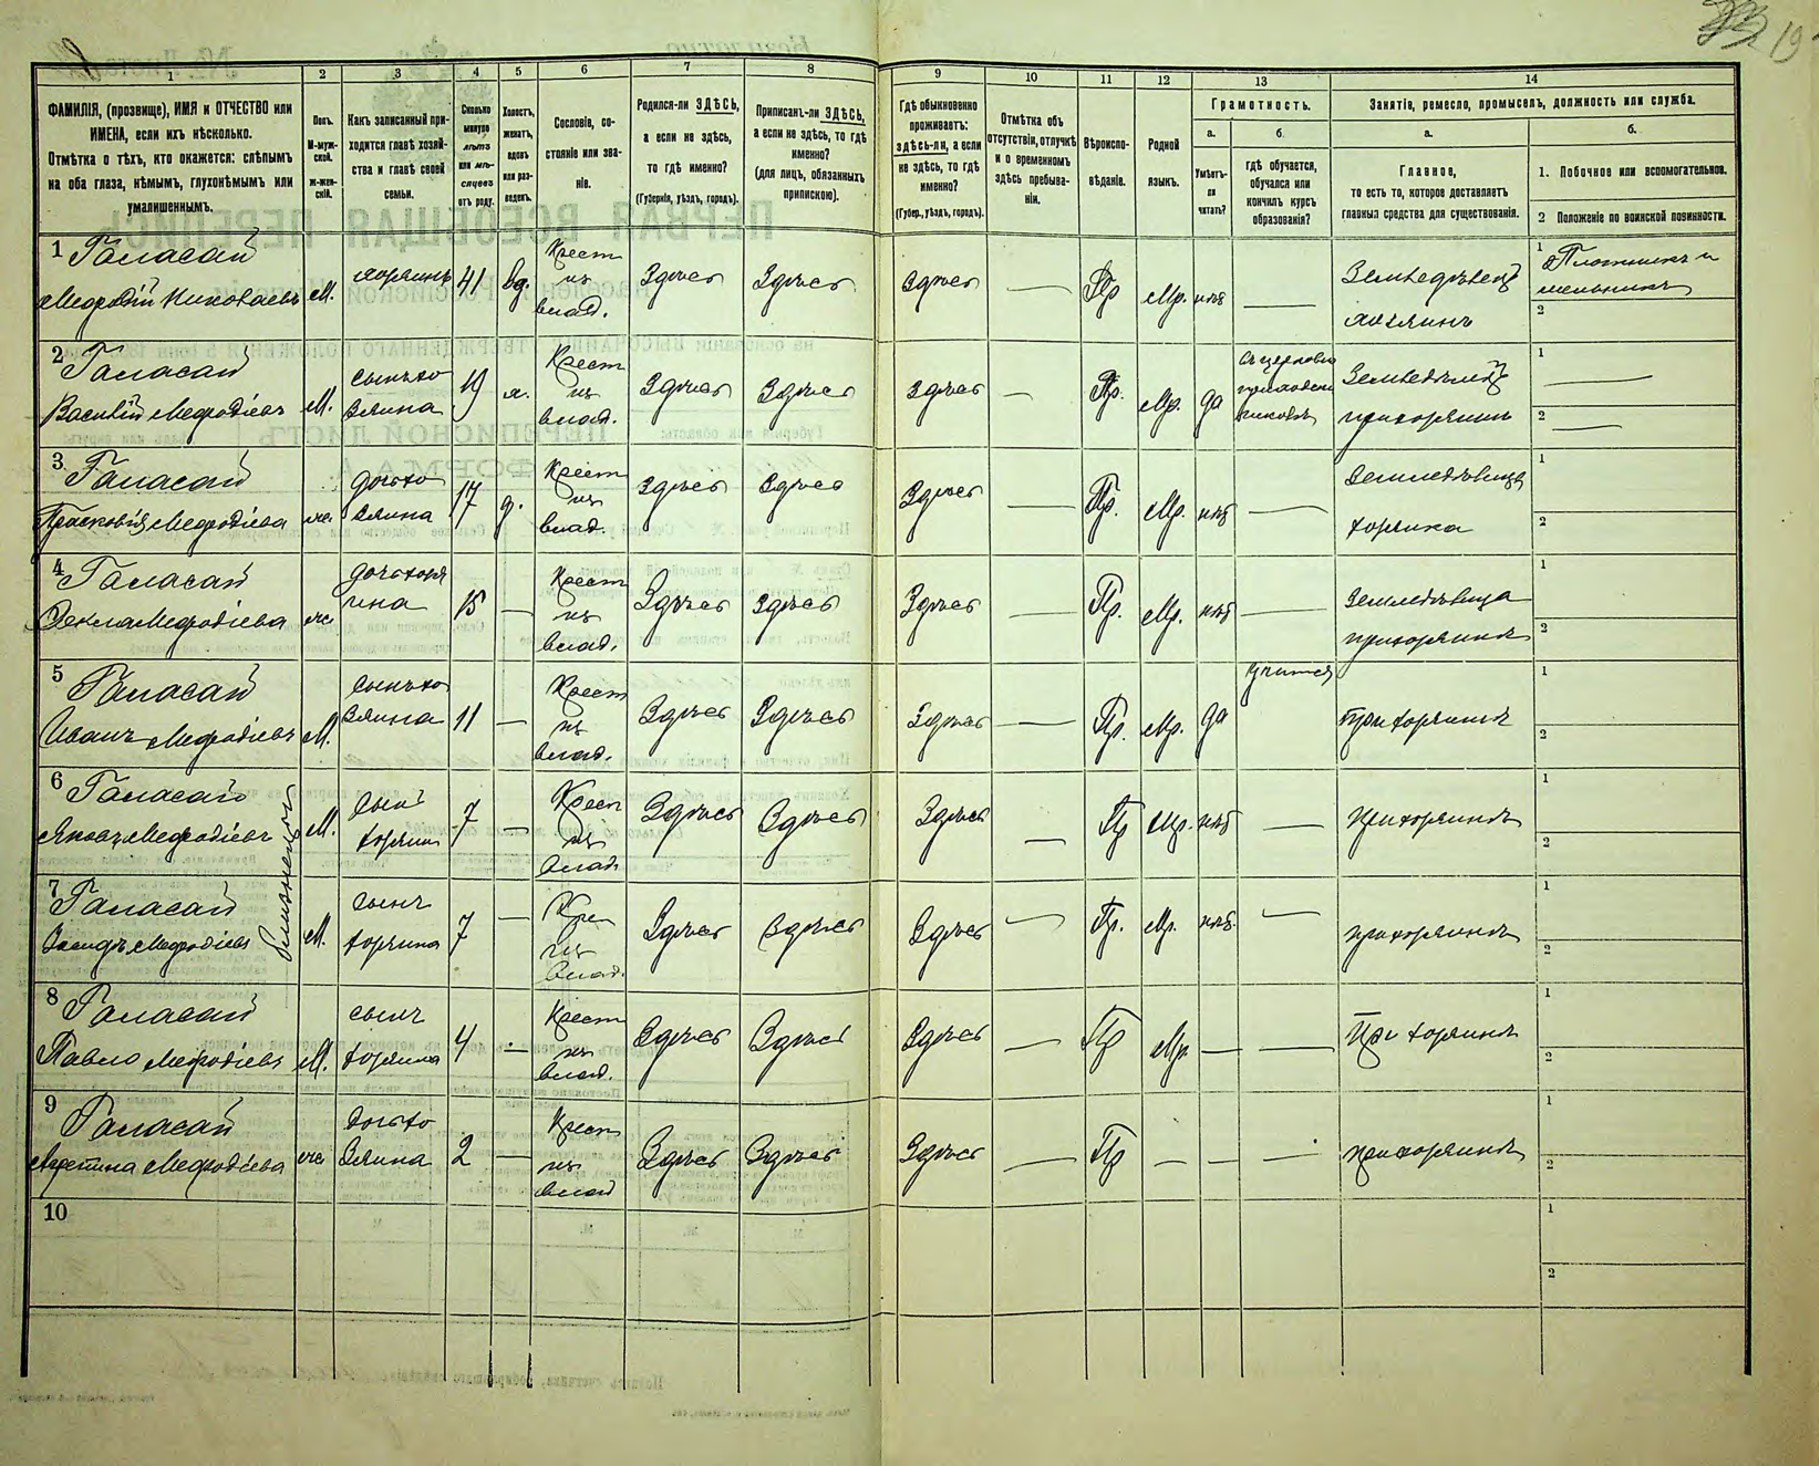 19
1 2 3 4 5 6 7 8 9 10 11 12 13 14
ФАМИЛІЯ, (прозвище), ИМЯ и ОТЧЕСТВО или
ИМЕНА, если ихъ нѣсколько.
Отмѣтка о тѣхъ, кто окажется: слѣпымъ
на оба глаза, нѣмымъ, глухонѣмымъ или
умалишеннымъ.
Полъ.
М-муж-
ской.
Ж-жен-
скій.
Какъ записанный при-
ходится главѣ хозяй-
ства и главѣ своей
семьи.
Сколько
минуло
лѣтъ
или мѣ-
сяцевъ
отъ роду.
Холостъ,
женатъ,
вдовъ
или раз-
веденъ.
Сословіе, со-
стояніе или зва-
ніе.
Родился-ли ЗДѢСЬ,
а если не здѣсь,
то гдѣ именно?
(Губернія, уѣздъ, городъ).
Приписанъ-ли ЗДѢСЬ,
а если не здѣсь, то гдѣ
именно?
(для лицъ, обязанныхъ
припискою).
Гдѣ обыкновенно
проживаетъ:
здѣсь-ли, а если
не здѣсь, то гдѣ
именно?
(Губер., уѣздъ, городъ).
Отмѣтка объ
отсутствіи, отлучкѣ
и о временномъ
здѣсь пребыва-
ніи.
Вѣроиспо-
вѣданіе.
Родной
языкъ.
Грамотность.
а. б.
Умѣетъ-
ли
читать?
гдѣ обучается,
обучался или
кончилъ курсъ
образованія?
Занятіе, ремесло, промыселъ, должность или служба.
а. б.
Главное,
то есть то, которое доставляетъ
главныя средства для существованія.
1. Побочное или вспомогательное.
2 Положеніе по воинской повинности.
1 Галасай
Мефодій Николаевъ М. хозяинъ 41 вд. Крест. из влад. Здѣсь Здѣсь Здѣсь — Пр Мр. нѣт — Земледѣлец хозяинъ 1 Плотникъ и мельникъ 2
2 Галасай
Василій Мефодіевъ М. сынъ хозяина 19 х. Крест из влад. Здѣсь Здѣсь Здѣсь — Пр. Мр. да приходск Земледѣлец прихозяинѣ 1 — 2 —
3 Галасай
Прасковія Мефодіева ж. дочь хозяина 17 д. Крест из влад. Здѣсь Здѣсь Здѣсь — Пр. Мр. нѣт — Земледѣлица 1 2
4 Галасай
Фекла Мефодіева ж. дочь хозяина 15 — Крест из влад. Здѣсь Здѣсь Здѣсь — Пр. Мр. нѣт — Земледѣлица прихозяинѣ 1 2
5 Галасай
Иванъ Мефодіевъ М. сынъ хозяина 11 — Крест из влад. Здѣсь Здѣсь Здѣсь — Пр. Мр. да учится При хозяинѣ 1 2
6 Галасай
Яковъ Мефодіевъ М. сынъ хозяина 7 — Крест из влад Здѣсь Здѣсь Здѣсь — Пр Мр. нѣт — Прихозяинѣ 1 2
близнецы
7 Галасай
Мефодіевъ М. сынъ хозяина 7 — Крес из влад. Здѣсь Здѣсь Здѣсь — Пр. Мр. нѣт. — прихозяинѣ 1 2
8 Галасай
Павло Мефодіевъ М. сынъ хозяина 4 — Крест из влад. Здѣсь Здѣсь Здѣсь — Пр Мр — — При хозяинѣ 1 2
9 Галасай
Мефодіева ж. дочь хозяина 2 — Крест из влад Здѣсь Здѣсь Здѣсь — Пр — — — прихозяинѣ 1 2
10 1 2